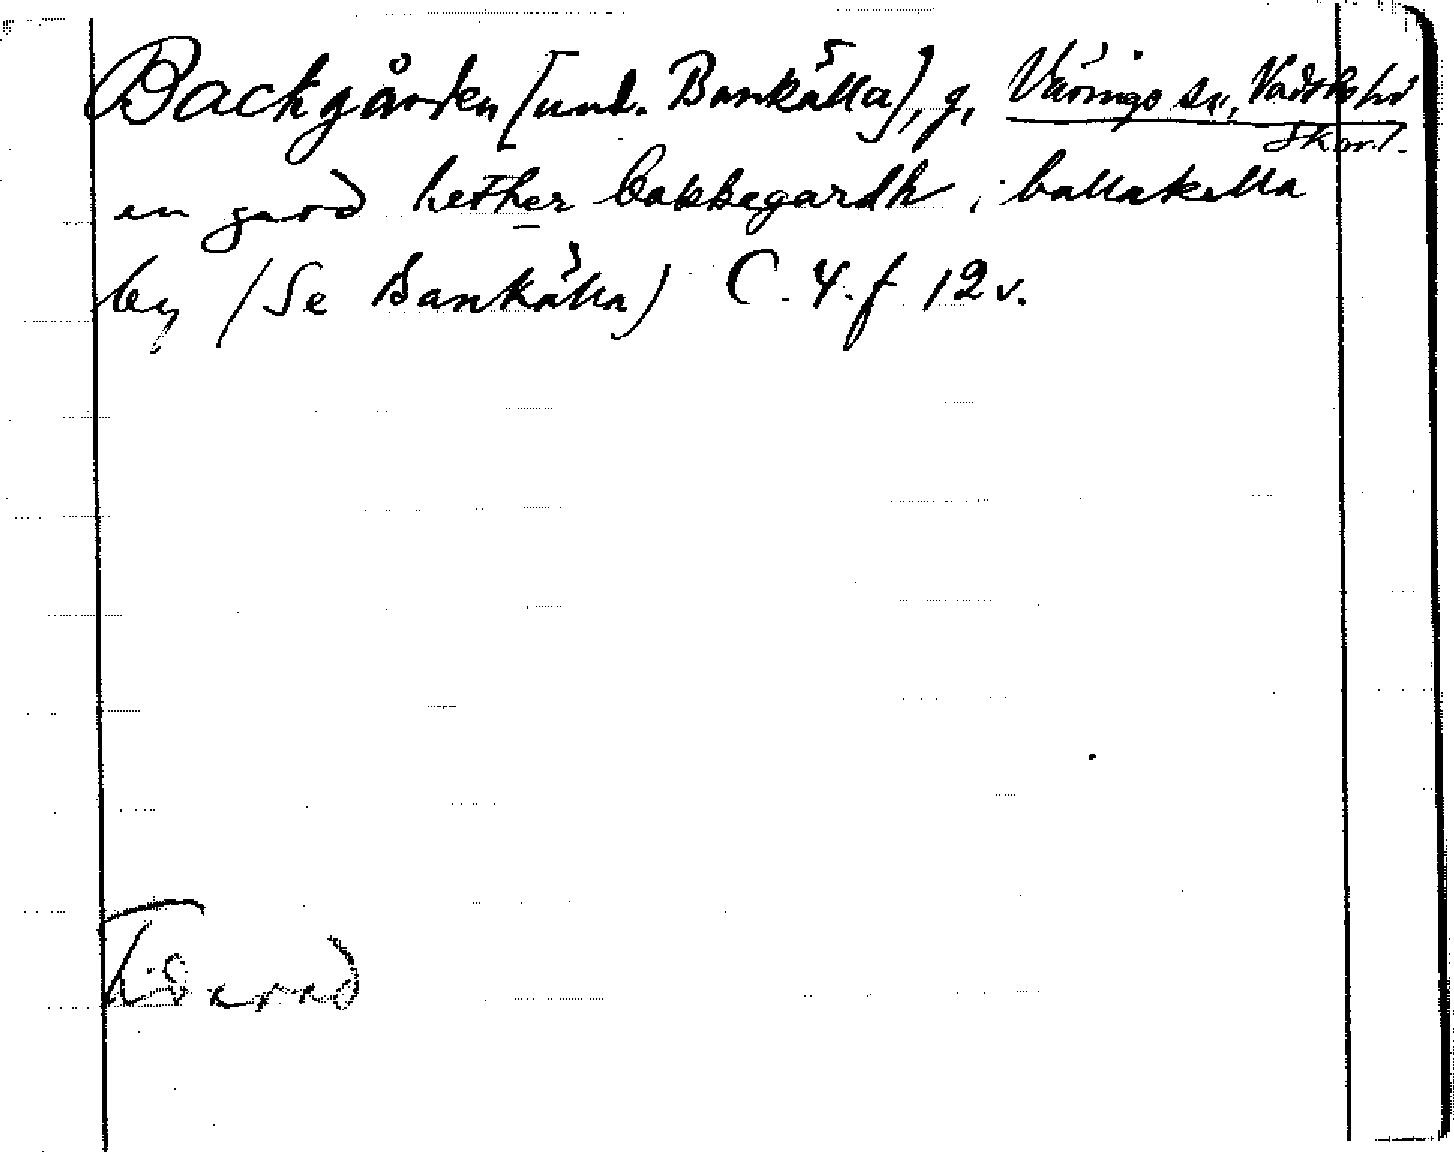 Backgården [und. Bankälla], g, Värings sn, Vadsbo hd
Skarab.
en gard hether bakkegardh i ballakella
by (Se Bankälla) C. 4. f 12 v.
Tiderad